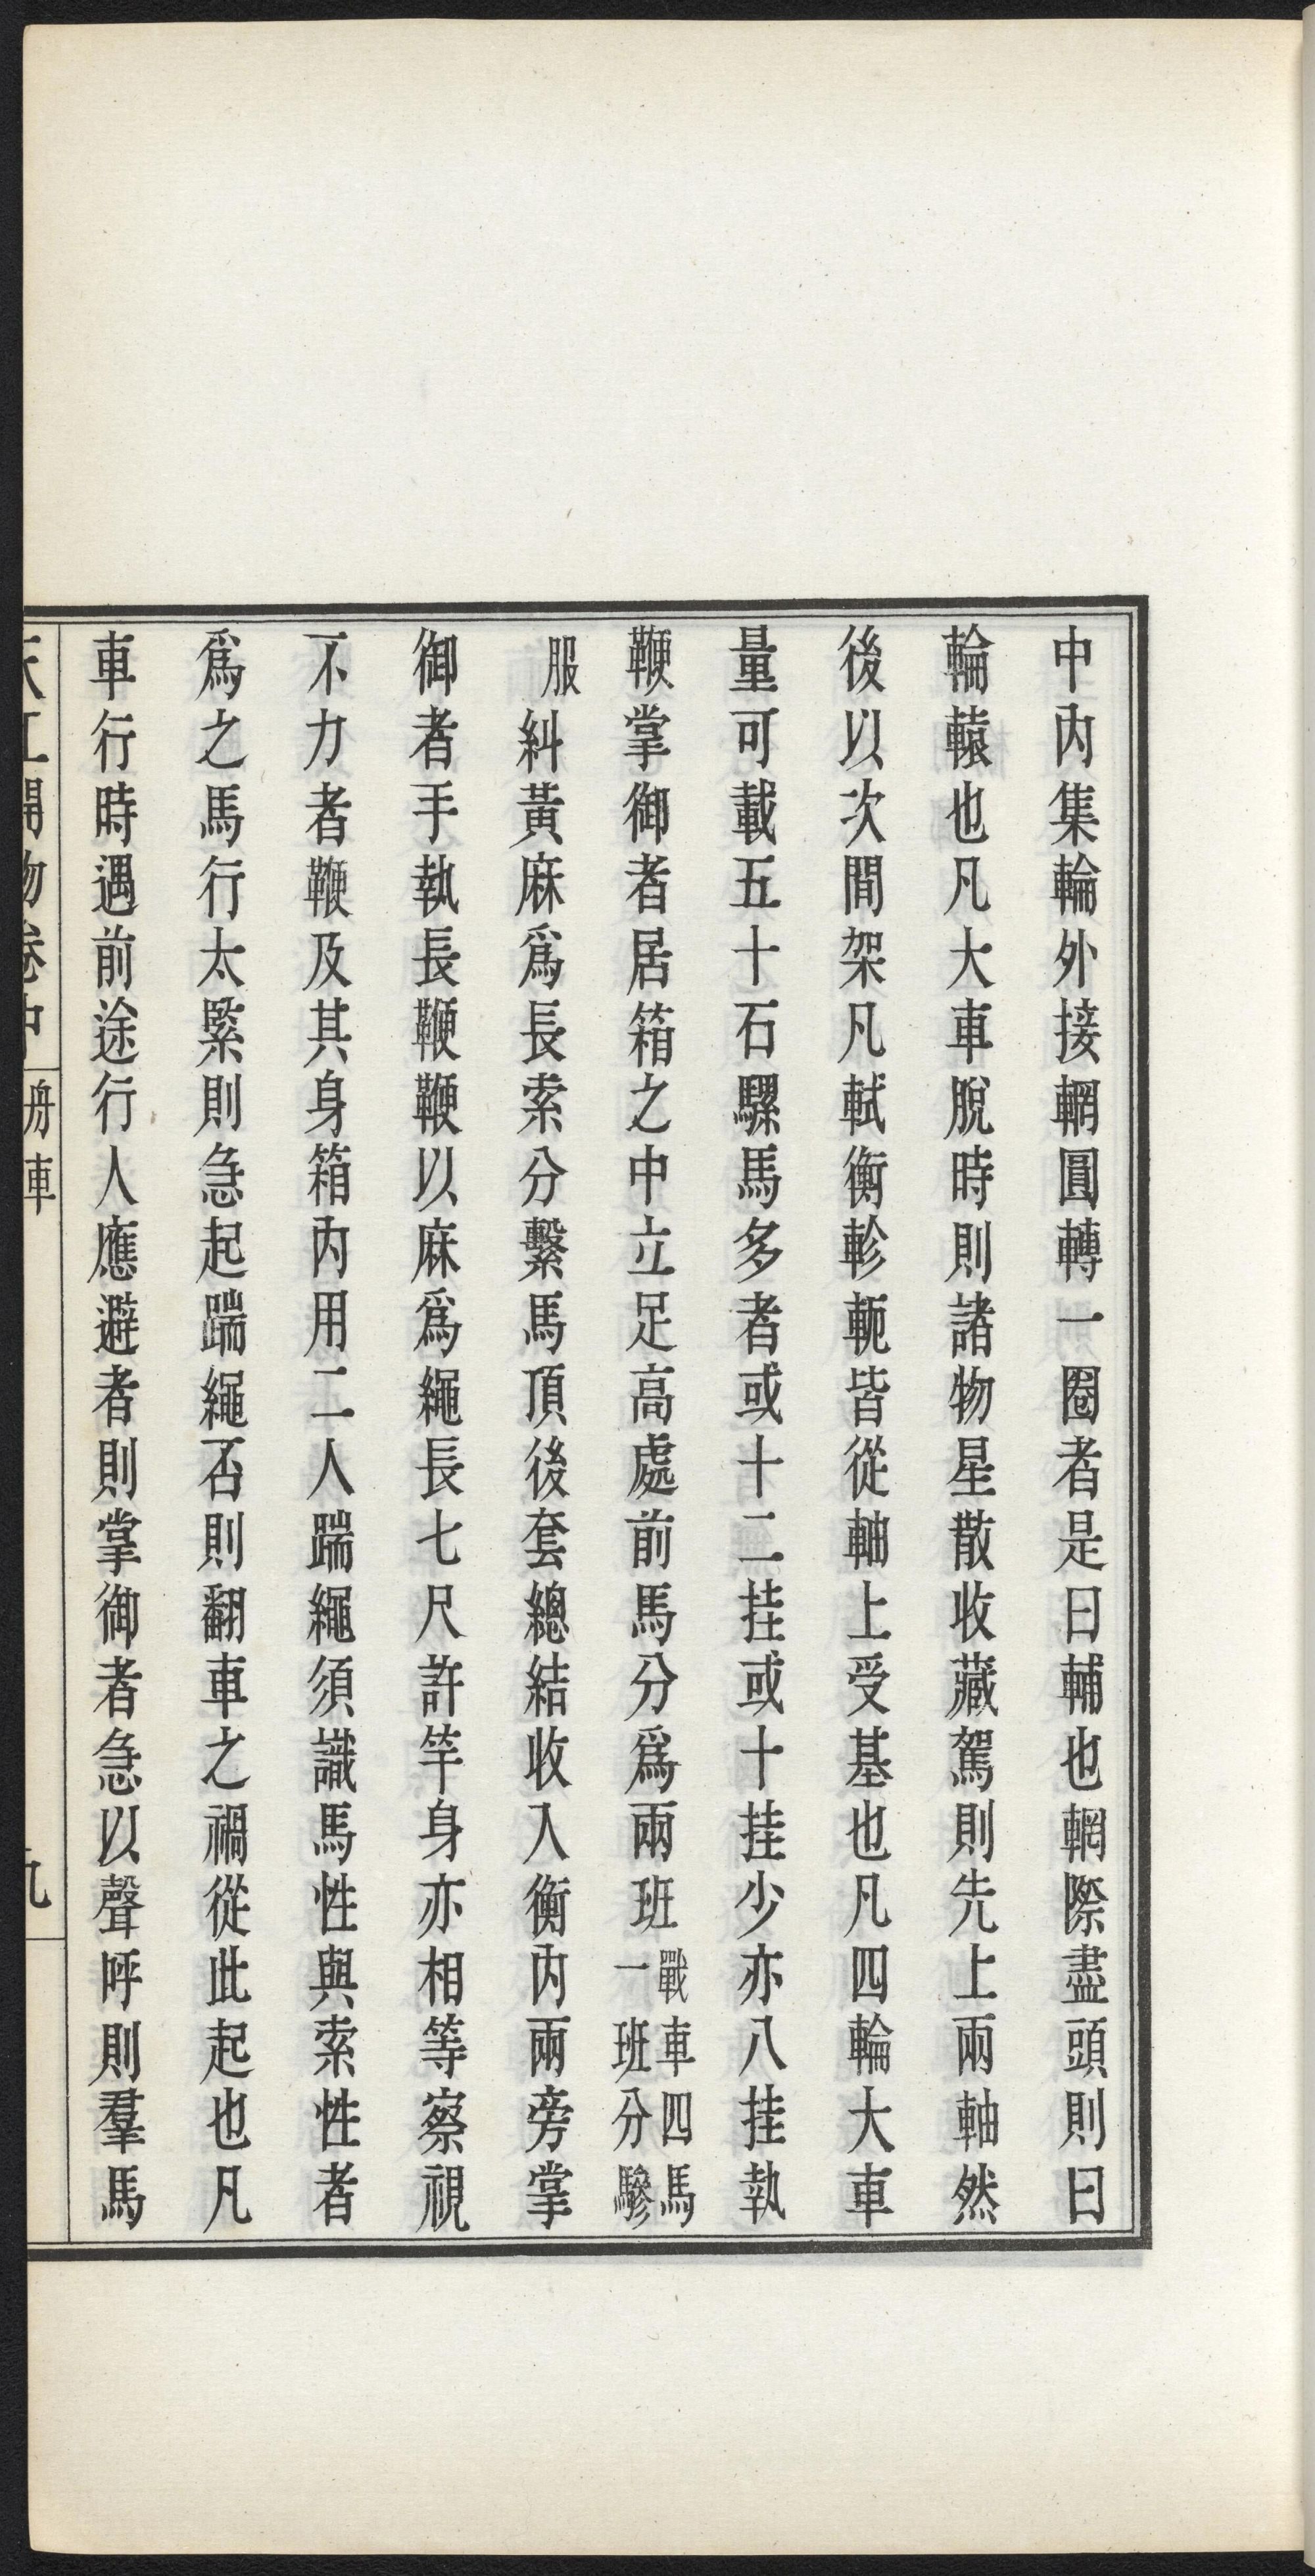 中內集輪外接輞圓轉一圈者是曰輔也輞際盡頭則曰
輪轅也凡大車脫時則諸物星散收藏駕則先上兩軸然
後以次間架凡軾衡軫軛皆從軸上受基也凡四輪大車
量可載五十石騾馬多者或十二挂或十挂少亦八挂執
鞭掌御者居箱之中立足高處前馬分爲兩班戰車四馬一班分驂
服糾黃麻爲長索分繫馬頂後套總結收入衡內兩旁掌
御者手執長鞭鞭以麻爲繩長七尺許竿身亦相等察視
不力者鞭及其身箱內用二人踹繩須識馬性與索性者
爲之馬行太緊則急起踹繩否則翻車之禍從此起也凡
車行時遇前途行人應避者則掌御者急以聲呼則羣馬
天工開物卷中
舟車
九